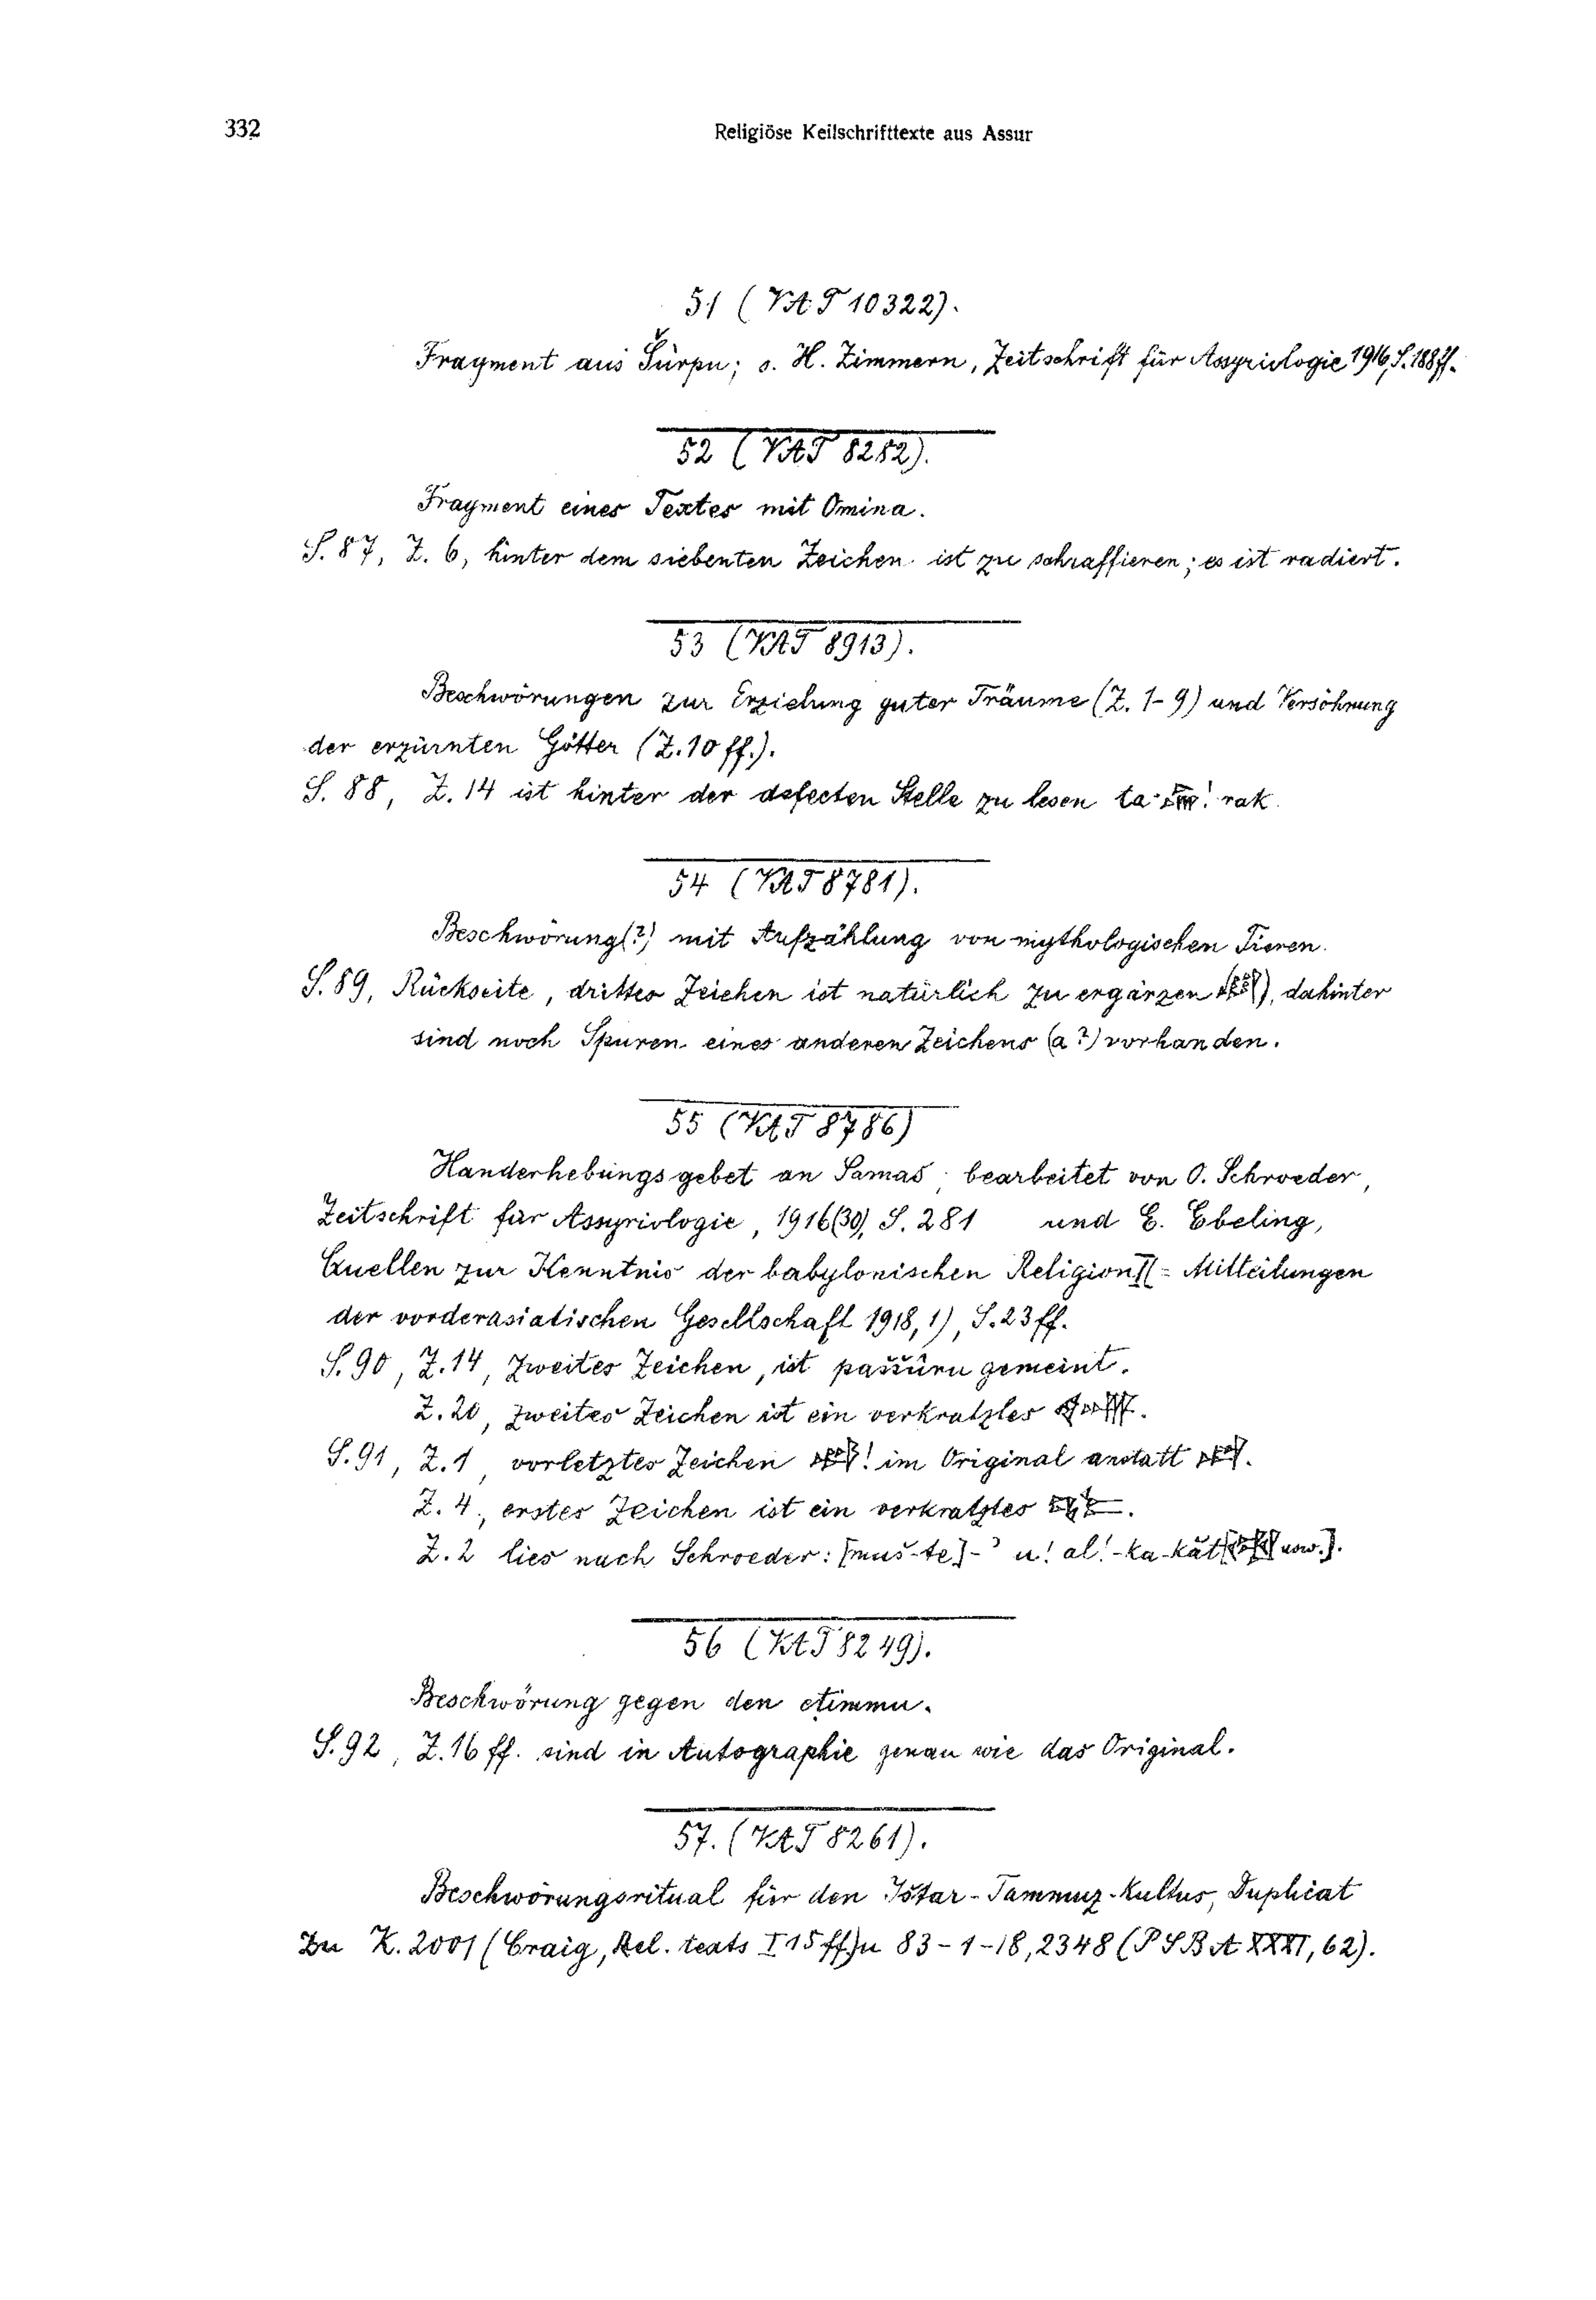 332
Religiöse Keilschrifttexte aus Assur
51 (VAT 10322).
Fragment aus Šurpu; s. H. Zimmern, Zeitschrift für Assyriologie 1916, S. 188ff.
52 (VAT 8282).
Fragment eines Textes mit Omina.
S. 87, Z. 6, hinter dem siebenten Zeichen ist zu schraffieren; es ist radiert.
53 (VAT 8913).
Beschwörungen zur Erzielung guter Träume (Z. 1-9) und Versöhnung
der erzürnten Götter (Z. 10 ff.).
S. 88, Z. 14 ist hinter der defecten Stelle zu lesen ta- ! rak.
54 (VAT 8781).
Beschwörung(?) mit Aufzählung von mythologischen Tieren.
S. 89, Rückseite, drittes Zeichen ist natürlich zu ergänzen ), dahinter
sind noch Spuren eines anderen Zeichens (a?) vorhanden.
55 (VAT 8786)
Handerhebungsgebet an Šamaš, bearbeitet von O. Schroeder,
Zeitschrift für Assyriologie, 1916(30), S. 281 und E. Ebeling,
Quellen zur Kenntnis der babylonischen Religion II (= Mitteilungen
der vorderasiatischen Gesellschaft 1918, 1), S. 23 ff.
S. 90, Z. 14, zweites Zeichen, ist paššûru gemeint.
Z. 20, zweites Zeichen ist ein verkratztes .
S. 91, Z. 1, vorletztes Zeichen ! im Original anstatt .
Z. 4, erstes Zeichen ist ein verkratztes .
Z. 2 lies nach Schroeder: [muš-te]-ʾ u! al!-ka-kăt[ usw.].
56 (VAT 8249).
Beschwörung gegen den eṭimmu.
S. 92, Z. 16 ff. sind in Autographie genau wie das Original.
57. (VAT 8261).
Beschwörungsritual für den Ištar-Tammuz-Kultus, Duplicat
zu K. 2001 (Craig, Rel. texts I 15 ff.) u 83-1-18, 2348 (PSBA XXXI, 62).